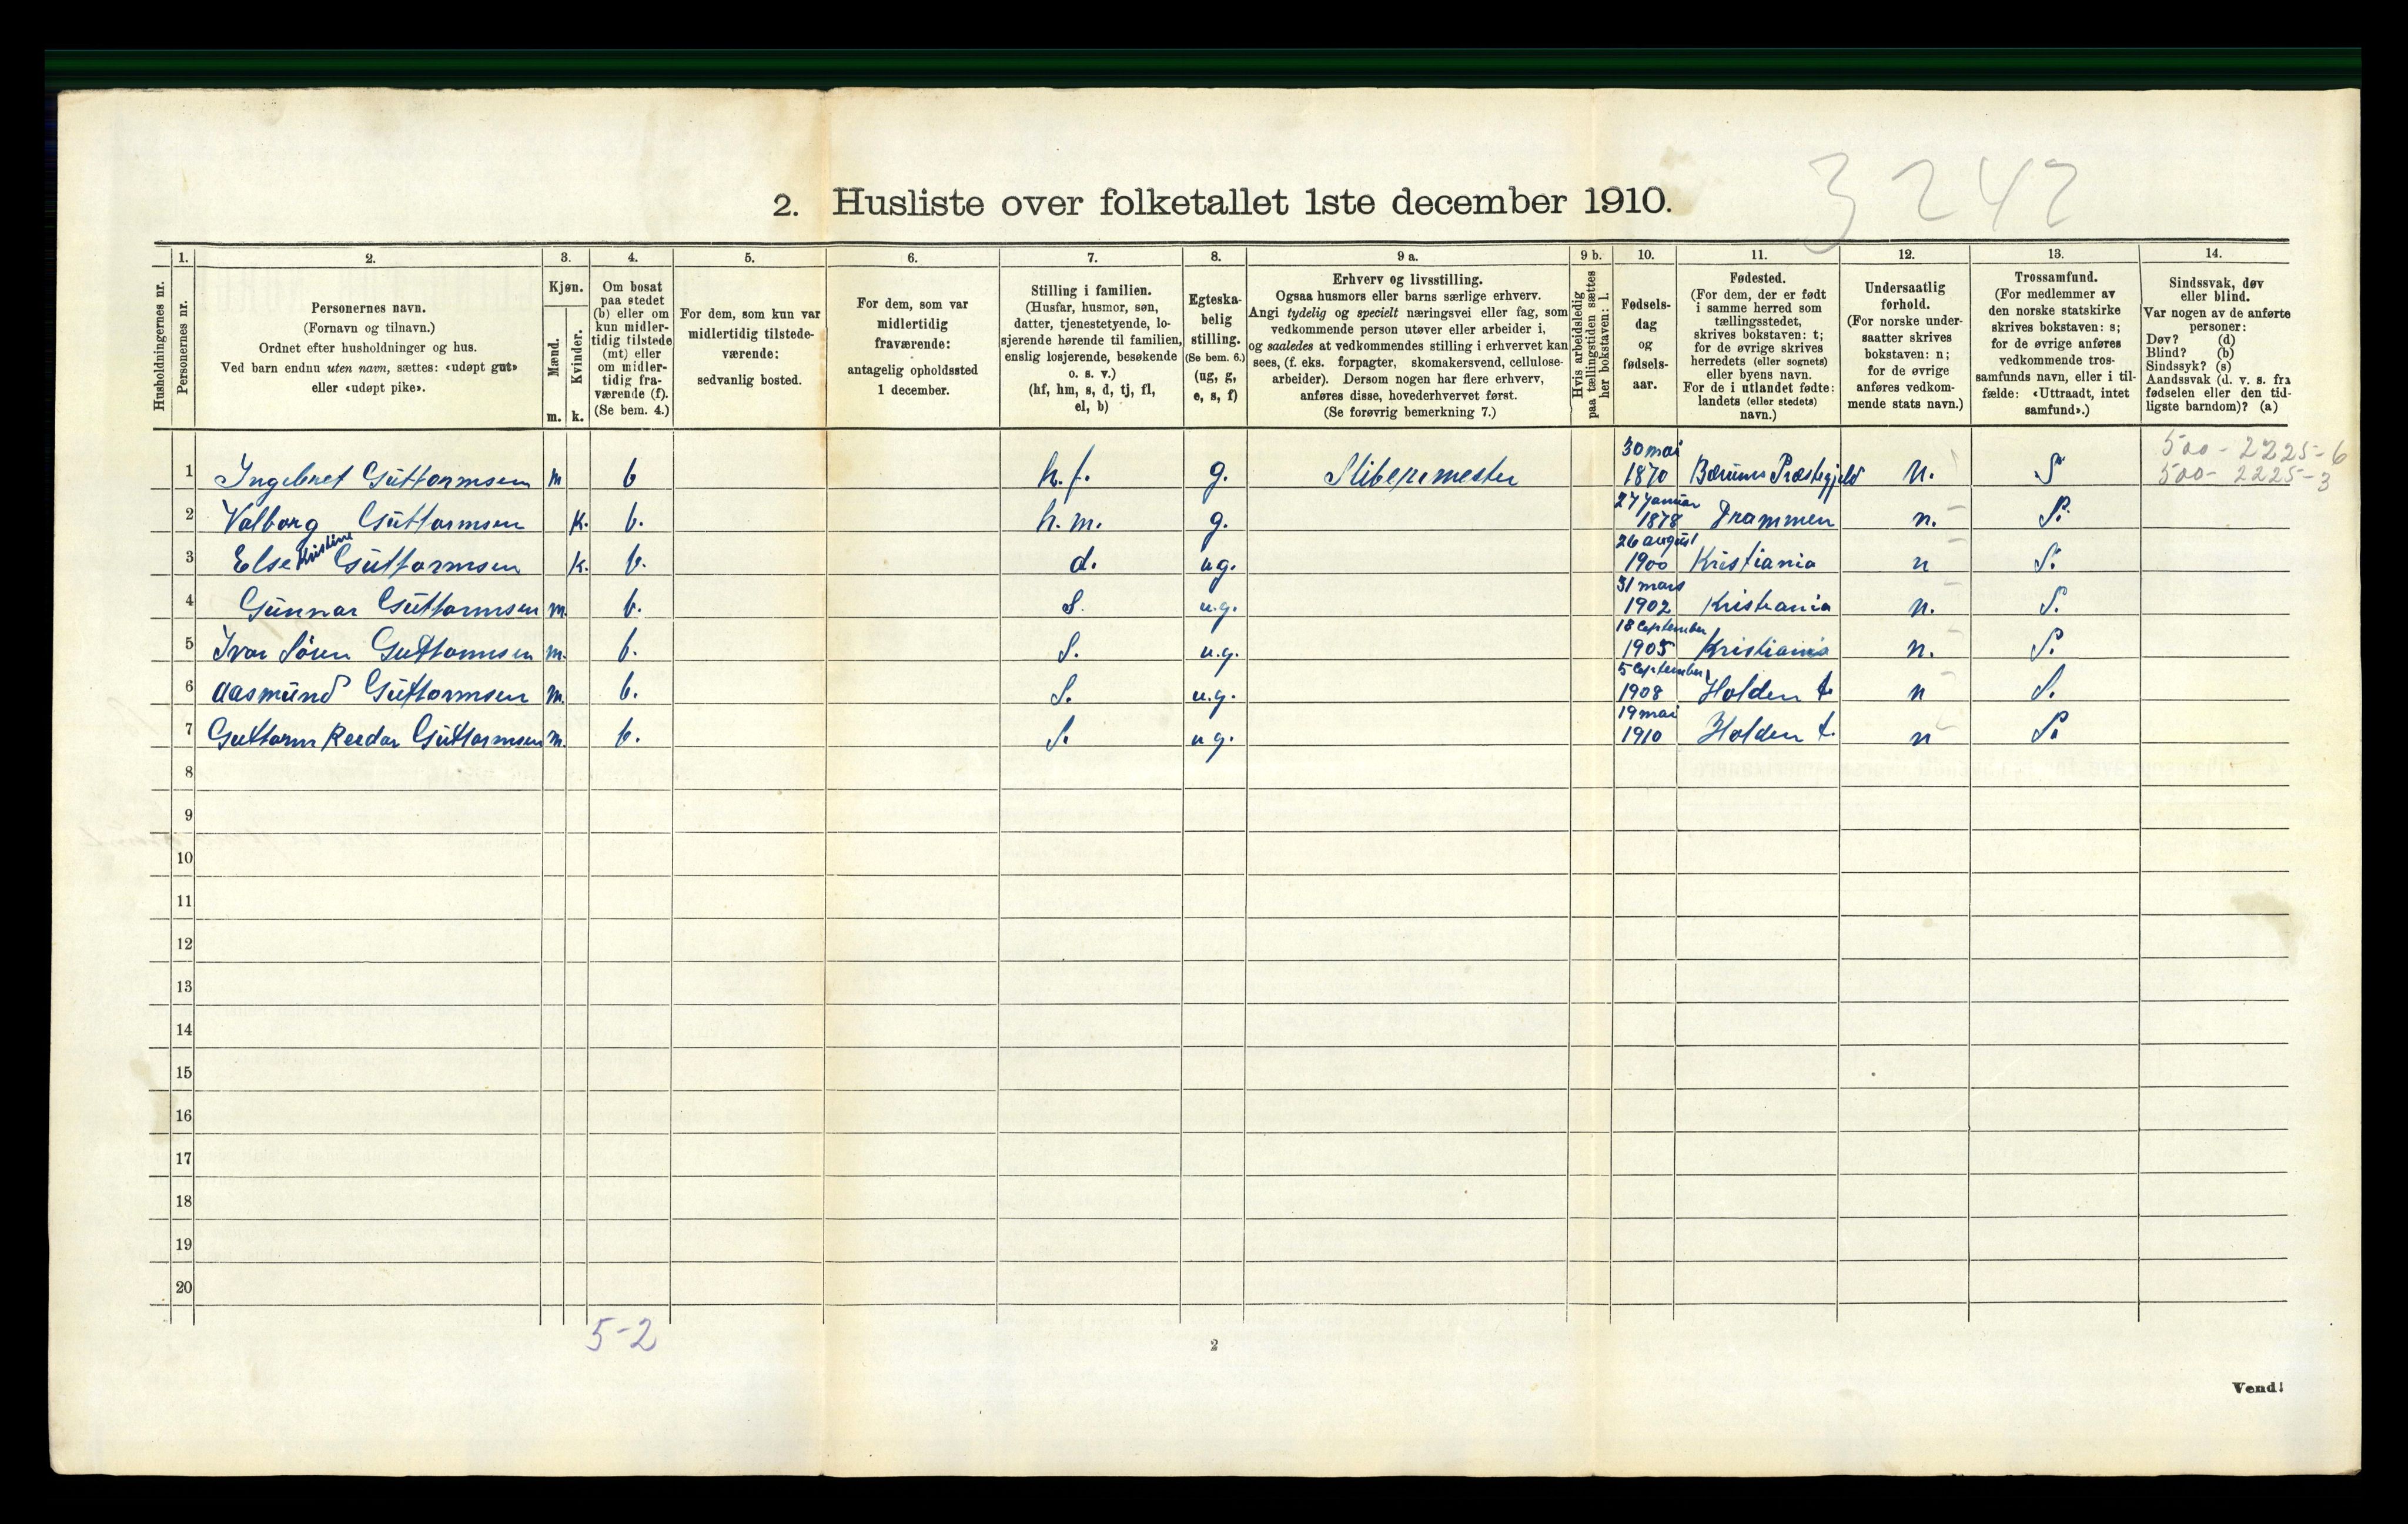 3242
2. Husliste over folketallet 1ste december 1910.
Husholdningernes nr.
1.
Personernes nr.
2.
Personernes navn.
(Fornavn og tilnavn.)
Ordnet efter husholdninger og hus.
Ved barn endnu uten navn, sættes: «udøpt gut»
eller «udøpt pike».
3.
Kjøn.
Mænd.
Kvinder.
m. k.
4.
Om bosat
paa stedet
(b) eller om
kun midler-
tidig tilstede
(mt) eller
om midler-
tidig fra-
værende (f).
(Se bem. 4.)
5.
For dem, som kun var
midlertidig tilstede-
værende:
sedvanlig bosted.
6.
For dem, som var
midlertidig
fraværende:
antagelig opholdssted
1 december.
7.
Stilling i familien.
(Husfar, husmor, søn,
datter, tjenestetyende, lo-
sjerende hørende til familien,
enslig losjerende, besøkende
o. s. v.)
(hf, hm, s, d, tj, fl,
el, b)
8.
Egteska-
belig
stilling.
(Se bem. 6.)
(ug, g,
e, s, f)
9 a.
Erhverv og livsstilling.
Ogsaa husmors eller barns særlige erhverv.
Angi tydelig og specielt næringsvei eller fag, som
vedkommende person utøver eller arbeider i,
og saaledes at vedkommendes stilling i erhvervet kan
sees, (f. eks. forpagter, skomakersvend, cellulose-
arbeider). Dersom nogen har flere erhverv,
anføres disse, hovederhvervet først.
(Se forøvrig bemerkning 7.)
9 b.
Hvis arbeidsledig
paa tællingstiden sættes
her bokstaven: l.
10.
Fødsels-
dag
og
fødsels-
aar.
11.
Fødested.
(For dem, der er født
i samme herred som
tællingsstedet,
skrives bokstaven: t;
for de øvrige skrives
herredets (eller sognets)
eller byens navn.
For de i utlandet fødte:
landets (eller stedets)
navn.)
12.
Undersaatlig
forhold.
(For norske under-
saatter skrives
bokstaven: n;
for de øvrige
anføres vedkom-
mende stats navn.)
13.
Trossamfund.
(For medlemmer av
den norske statskirke
skrives bokstaven: s;
for de øvrige anføres
vedkommende tros-
samfunds navn, eller i til-
fælde: «Uttraadt, intet
samfund».)
14.
Sindssvak, døv
eller blind.
Var nogen av de anførte
personer:
Døv? (d)
Blind? (b)
Sindssyk? (s)
Aandssvak (d. v. s. fra
fødselen eller den tid-
ligste barndom)? (a)
500-2225-6
500-2225-3
1 Ingebret Guttormsen m b h.f. g. Stibermester 30 mai 1870 Bærums Præstegjeld n. S
2 Valborg Guttormsen k. b. h.m. g. 27 januar 1878 Drammen n. S.
3 Else Kristine Guttormsen k. b. d. ug. 26 august 1900 Kristiania n S.
4 Gunnar Guttormsen m. b. S. u.g. 31 mars 1902 Kristiania n. S.
5 Ivar Sören Guttormsen m. b. S. u.g. 18 September 1905 Kristiania n. S.
6 Aasmund Guttormsen m. b. S. u.g. 5 September 1908 Holden t. n S.
7 Guttorm Reidar Guttormsen m. b. S. ug. 19 mai 1910 Holden t. n S.
8
9
10
11
12
13
14
15
16
17
18
19
20
5-2
2
Vend!